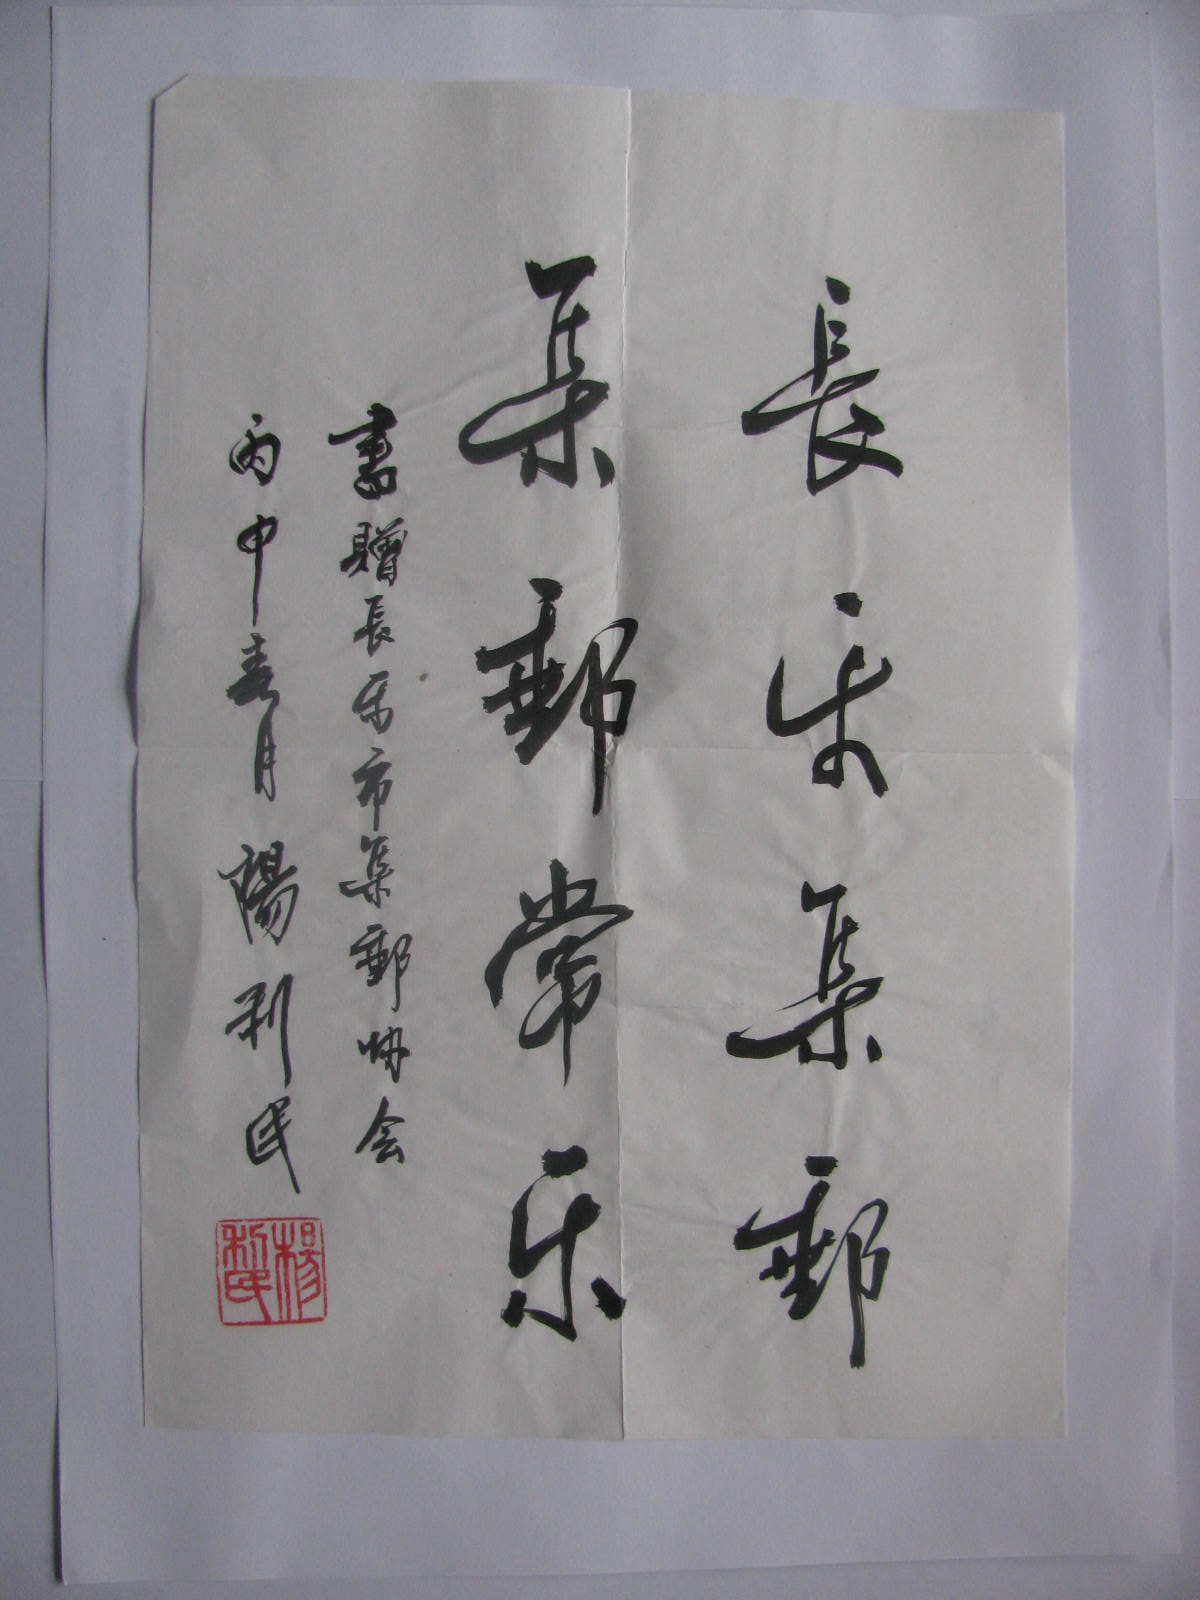 長乐集郵
集郵常乐
書贈長乐市集郵協会
丙申春月 楊利民
楊利民